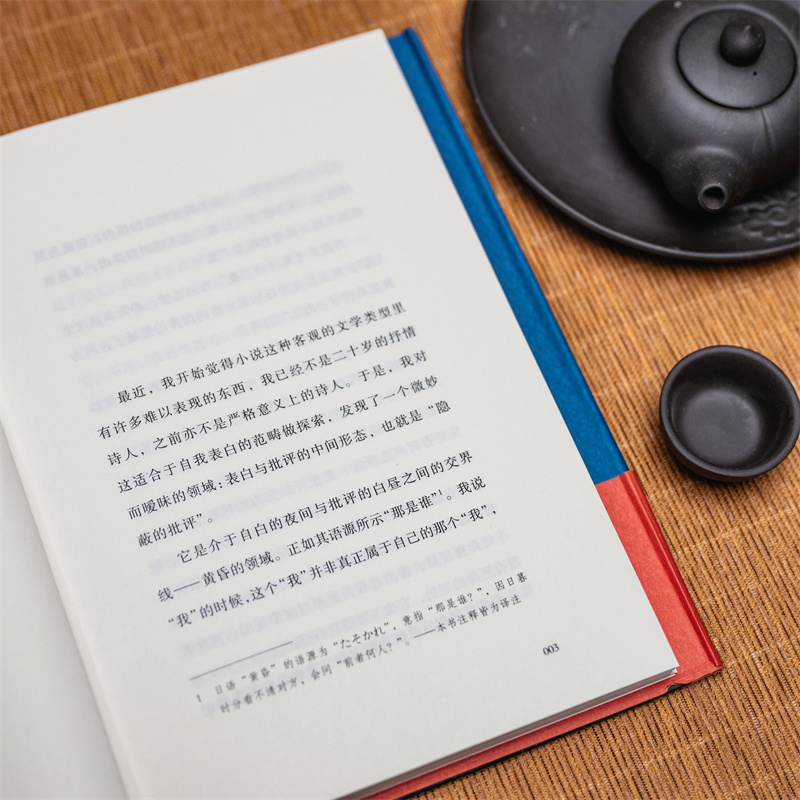 最近，我开始觉得小说这种客观的文学类型里
有许多难以表现的东西，我已经不是二十岁的抒情
诗人，之前亦不是严格意义上的诗人。于是，我对
这适合于自我表白的范畴做探索，发现了一个微妙
而暧昧的领域：表白与批评的中间形态，也就是“隐
蔽的批评”。
它是介于自白的夜间与批评的白昼之间的交界
线——黄昏的领域。正如其语源所示“那是谁”1。我说
“我”的时候，这个“我”并非真正属于自己的那个“我”，
1 日语“黄昏”的语源为“たそかれ”，意指“那是谁？”，因日暮
时分看不清对方，会问“前者何人？”。——本书注释皆为译注
003